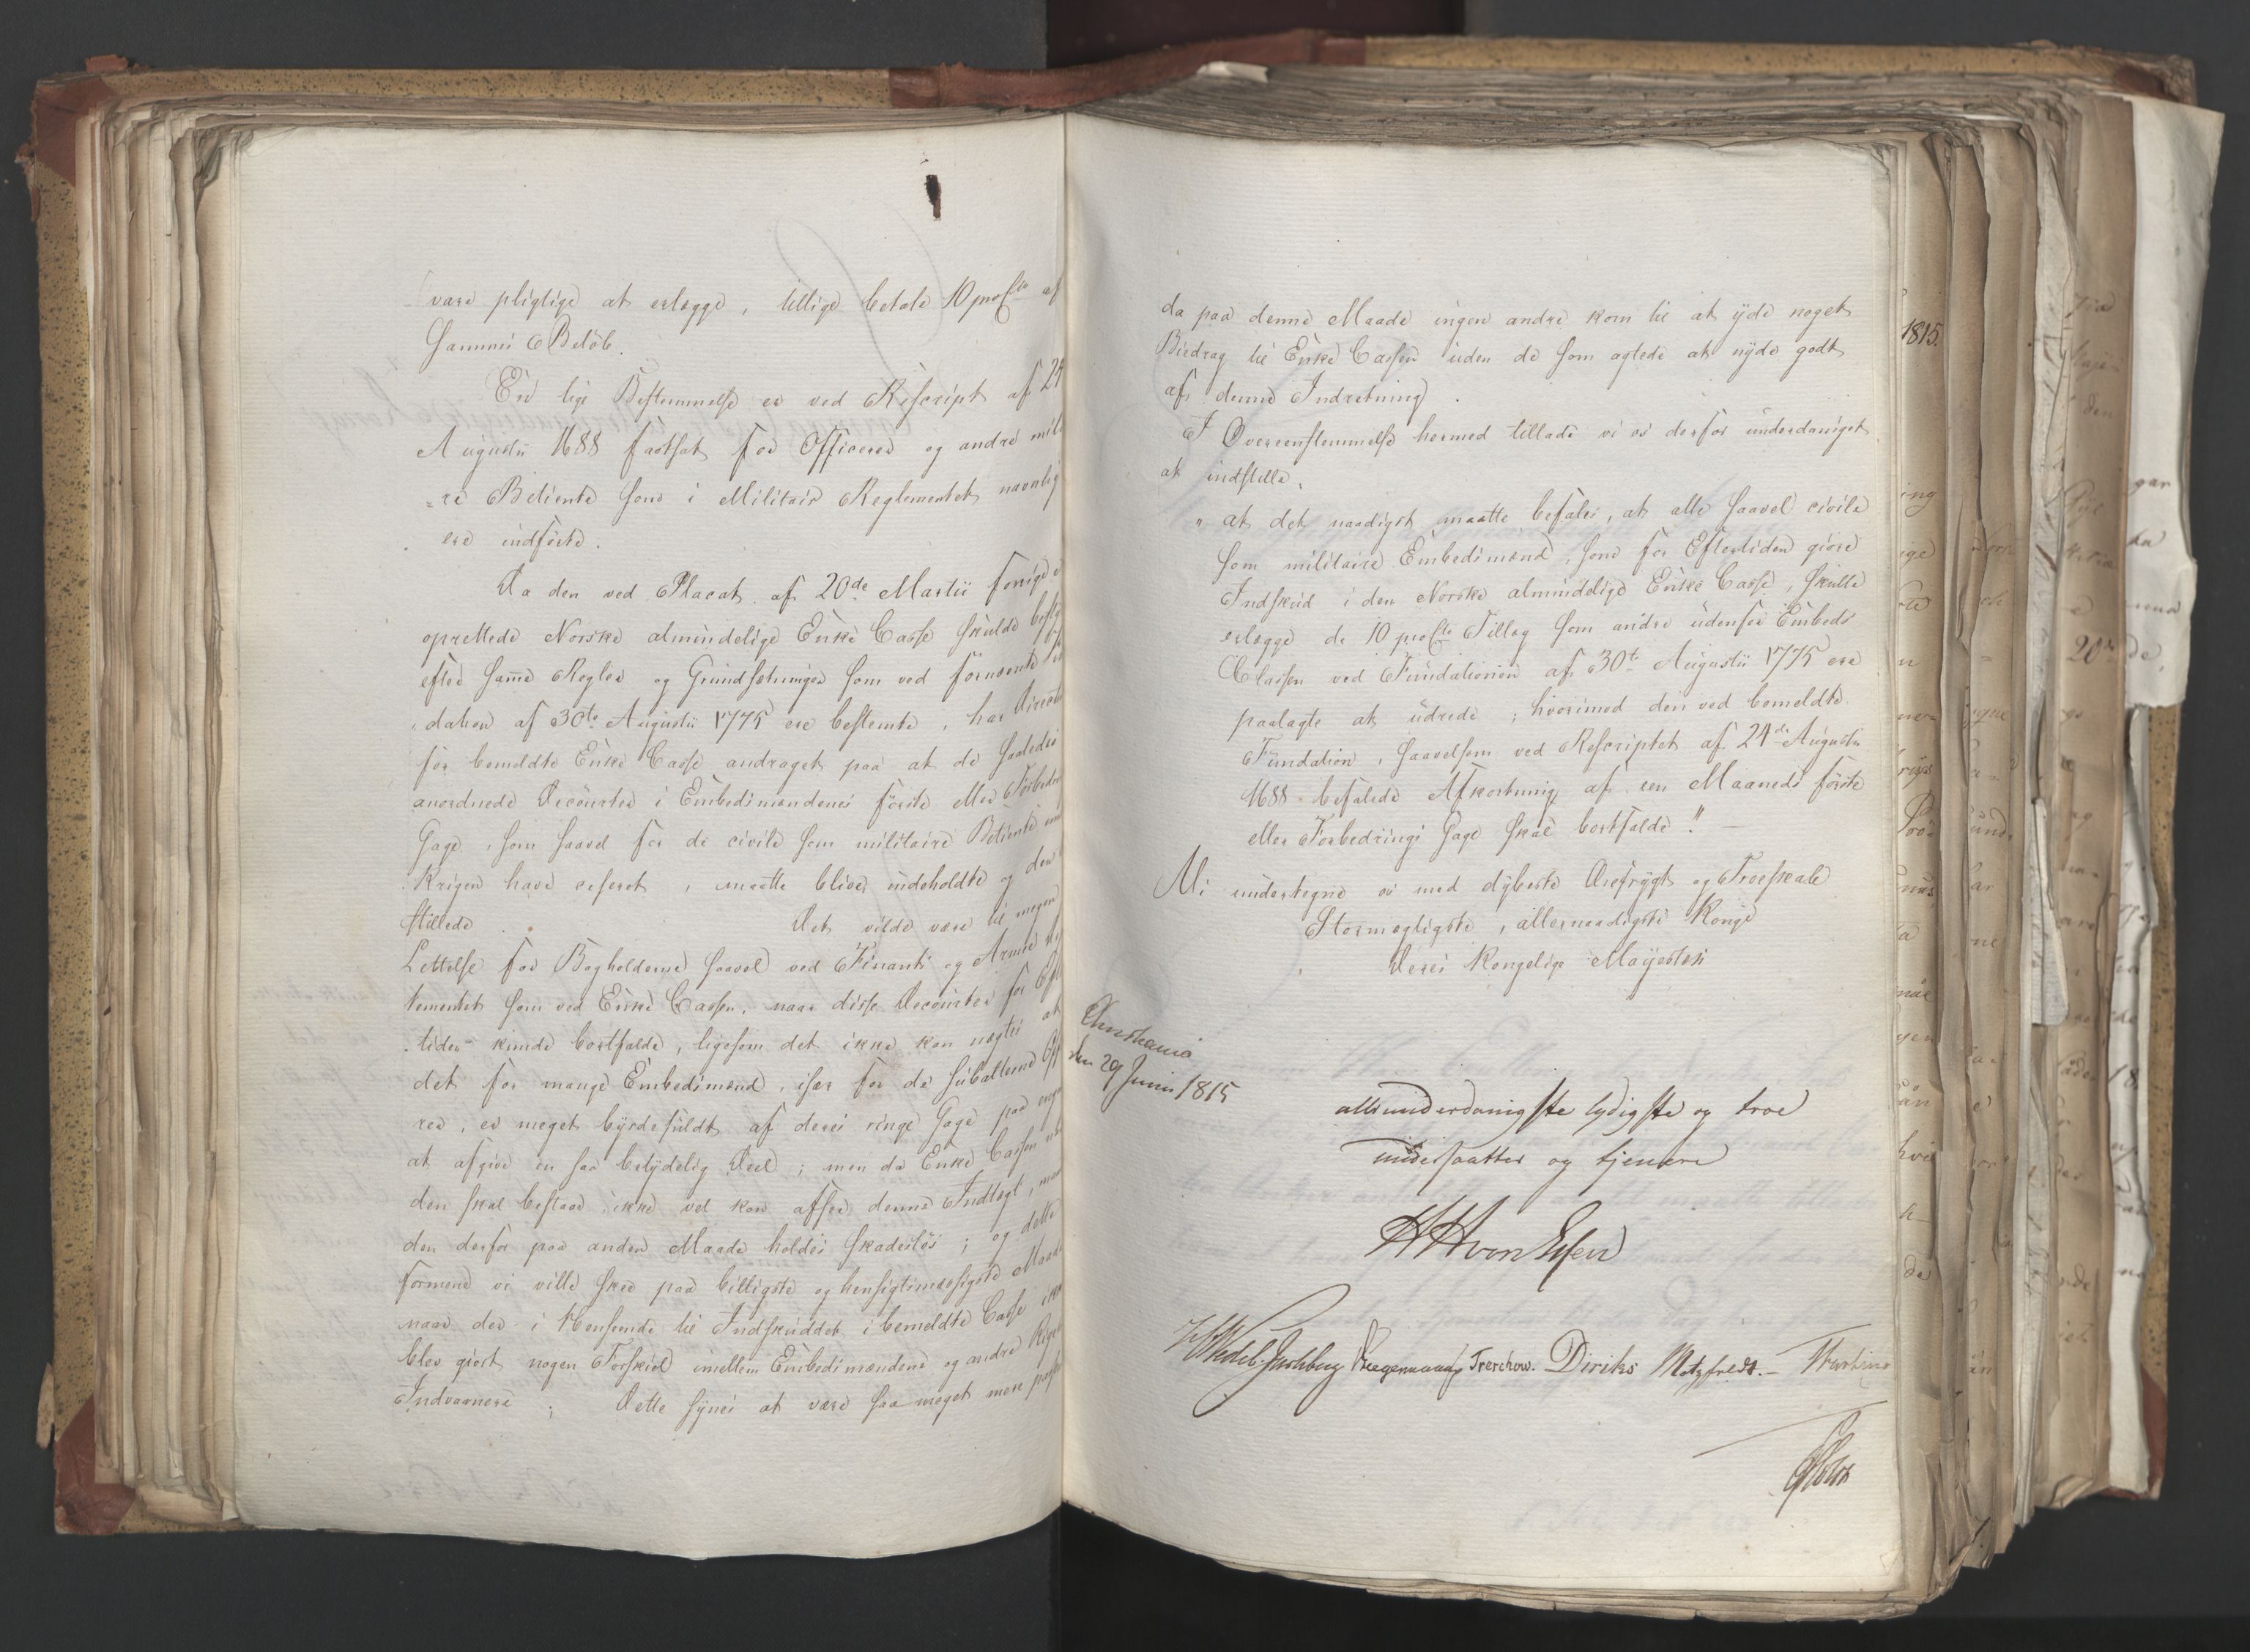 være pligtige at erlægge, tillige betale 10 proCto af
Sammes Beløb.
En lige Bestemmelse er ved Rescript af 24
Augusti 1688 fastsat for Officerer og andre mili
=re Betiente som i Militair Reglementet navnlig
ere indførte.
Da den ved Placat af 20de Martii forrige
oprettede Norske almindelige Enke Casse skulde
efter samme Regler og Grundsætninger som ved fornævnte
dation af 30te Augustii 1775 ere bestemte, har
for bemeldte Enke Casse andraget paa at de saaledes
anordnede Decourter i Embedsmændenes første eller Forbedr
Gage, som saavel for de civile som militaire Betiente
Krigen have cesseret, maatte blive indeholdte og den
stillede. Det vilde være til megen
Lettelse for Bogholderne saavel ved Finants og Armee
tementet som ved Enke Cassen, naar disse Decourter for
tiden kunde bortfalde, ligesom det ikke kan nægtes at
det for mange Embedsmænd, især for de subalterne
rer, er meget byrdefuldt af deres ringe Gage paa
at afgive en saa betydelig Deel; men da Enke Cassen
den skal bestaae, ikke vel kan afsee denne Indtægt, maa
den derfor paa anden Maade holdes skadesløs; og dette
formene vi ville skee paa billigste og hensigtsmæssigste Maade
naar der i Henseende til Indskuddet i bemeldte Casse
blev giort nogen Forskiel imellem Embedsmændene og andre Rigets
Indvaanere; Dette synes at være saa meget mere
1815.
da paa denne Maade ingen andre kom til at yde noget
Bidrag til Enke Cassen uden de som agtede at nyde godt
af denne Indretning.
I Overeenstemmelse hermed tillade vi os derfor underdanigst
at indstille,
" at det naadigst maatte befales, at alle saavel civile
som militaire Embedsmænd, som for Eftertiden giøre
Indskud i den Norske almindelige Enke Casse, skulle
erlægge de 10 proCto Tillæg som andre udenfor Embeds
Classen ved Fundationen af 30te Augustii 1775 ere
paalagte at udrede; hvorimod den ved bemeldte
Fundation, saavelsom ved Rescriptet af 24de Augusti
1688 befalede Afkortning af een Maaneds første
eller Forbedrings Gage skal bortfalde." —
Vi undertegne os med dybeste Ærefrygt og Troeskab
Stormægtigste, allernaadigste Konge
Deres Kongelige Mayestæts
Christiania
den 29 Junii 1815
allerunderdanigste lydigste og troe
undersaatter og tjenere
HH von Essen
HWedel Jarlsberg Krogemann Treschow. Diriks Motzfeldt.—
Holst